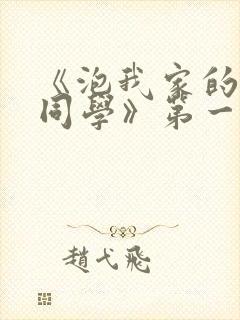 《泡我家的
同學》第一
趙弋飛